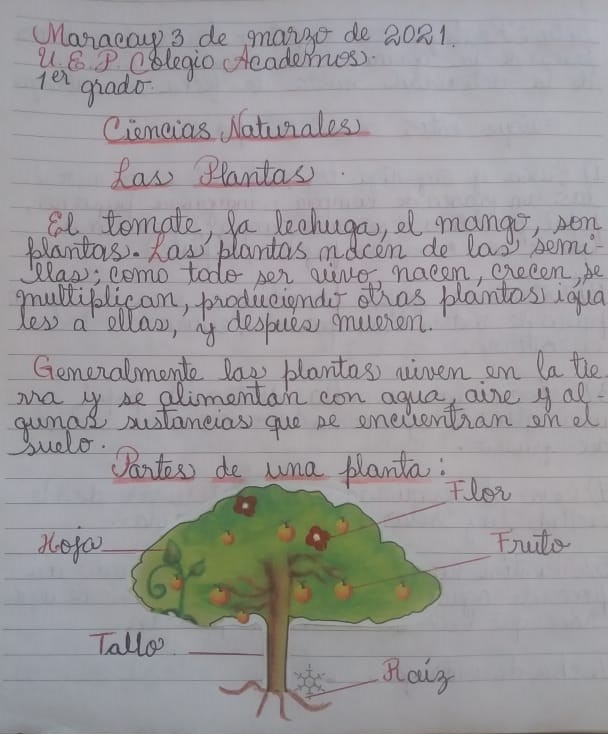 Maracay 3 de marzo de 2021.
U.E.P Colegio Academos.
1er grado.
Ciencias Naturales
Las Plantas.
El tomate, la lechuga, el mango, son
plantas. Las plantas nacen de las semi-
llas; como todo ser vivo, nacen, crecen, se
multiplican, produciendo otras plantas igua
les a ellas, y después mueren.
Generalmente las plantas viven en la tie
rra y se alimentan con agua, aire y al-
gunas sustancias que se encuentran en el
suelo.
Partes de una planta:
Flor
Hoja
Fruto
Tallo
Raíz